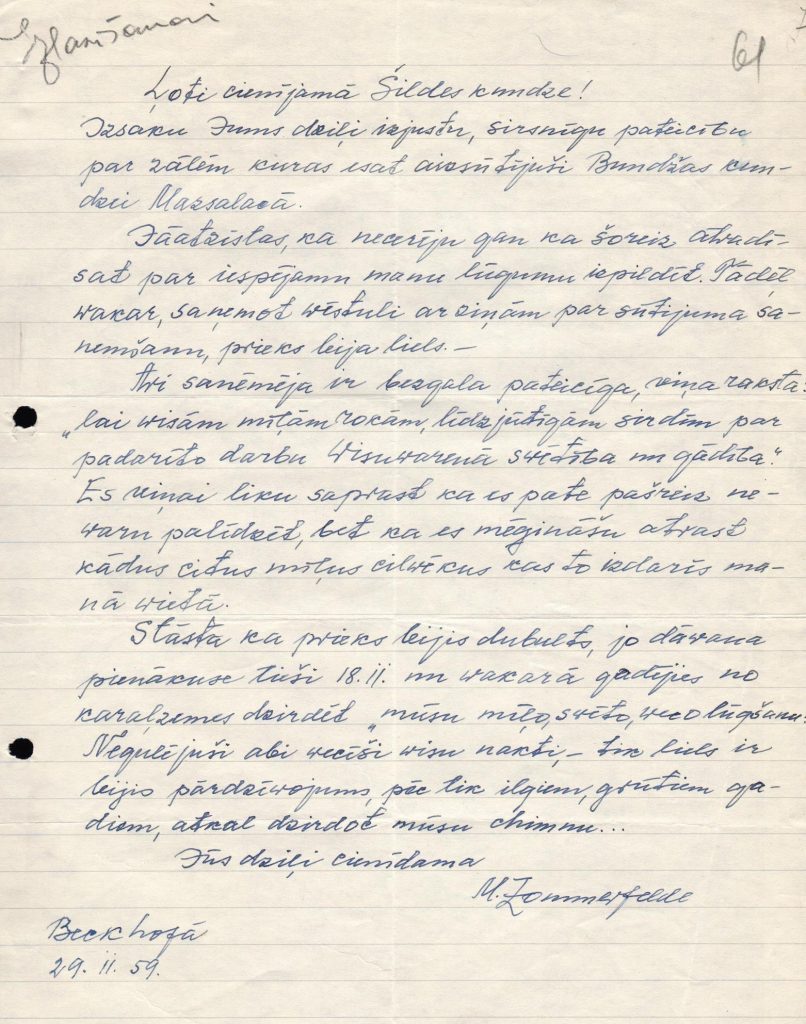 Izlasīšanai
61
Ļoti cienījamā Šildes kundze!
Izsaku Jums dziļi izjustu, sirsnīgu pateicību
par zālēm kuras esat aizsūtījuši Bundžas kun-
dzei Mazsalacā.
Jāatzīstas, ka necerēju gan ka šoreiz atradī-
sat par iespējamu manu lūgumu izpildīt. Tādēļ
wakar, saņemot wēstuli ar ziņām par sūtijuma sa-
ņemšanu, prieks bija liels.—
Arī saņēmēja ir bezgala pateicīga, viņa raksta:
„lai wisām mīļām rokām, līdzjūtīgām sirdīm par
padarīto darbu Wisuwarenā swētība un gādība."
Es viņai liku saprast ka es pate pašreiz ne-
waru palīdzēt, bet ka es mēģināšu atrast
kādus citus mīļus cilwēkus kas to izdarīs ma-
nā wietā.
Stāsta ka prieks bijis dubults, jo dāwana
pienākuse tieši 18.II. un wakarā gadījies no
karaļzemes dzirdēt „mūsu mīļo, swēto, weco lūgšanu"
Negulējuši abi wecīši wisu nakti,— tik liels ir
bijis pārdzīwojums, pēc tik ilgiem, grūtiem ga-
diem, atkal dzirdot mūsu chimnu...
Jūs dziļi cienīdama
M. Zommerfelde
Beckhofā
29. II. 59.